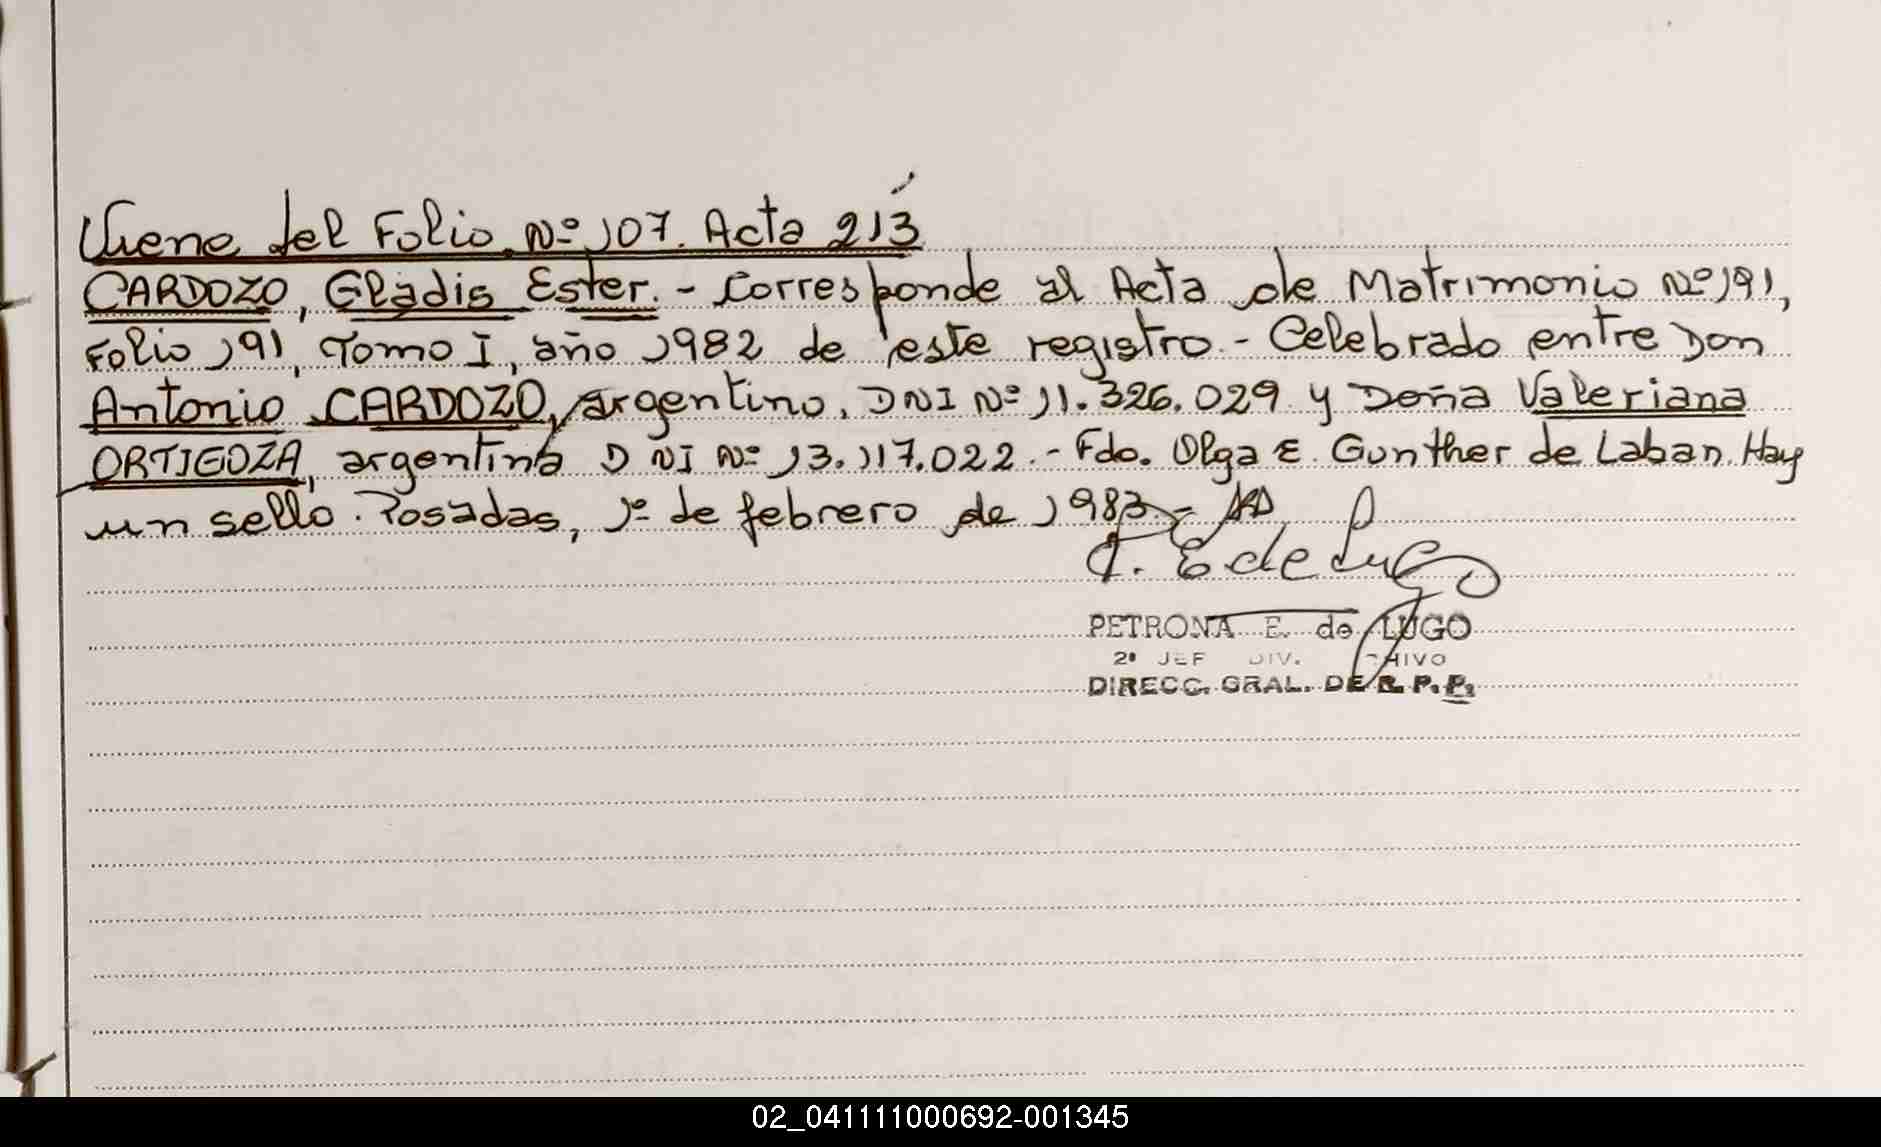 Viene del Folio Nº 107. Acta 213
CARDOZO, Gladis Ester. - Corresponde al Acta de Matrimonio Nº 191,
Folio 191, Tomo I, año 1982 de este registro. - Celebrado entre Don
Antonio CARDOZO, argentino, DNI Nº 11.326.029 y Doña Valeriana
ORTIGOZA, argentina DNI Nº 13.117.022. - Fdo. Olga E. Gunther de Laban. Hay
un sello. Posadas, 1º de febrero de 1983 -
E de Lugo
PETRONA E. de LUGO
2º JEF DIV. CHIVO
DIRECC. GRAL. DE R. P. P.
02_041111000692-001345